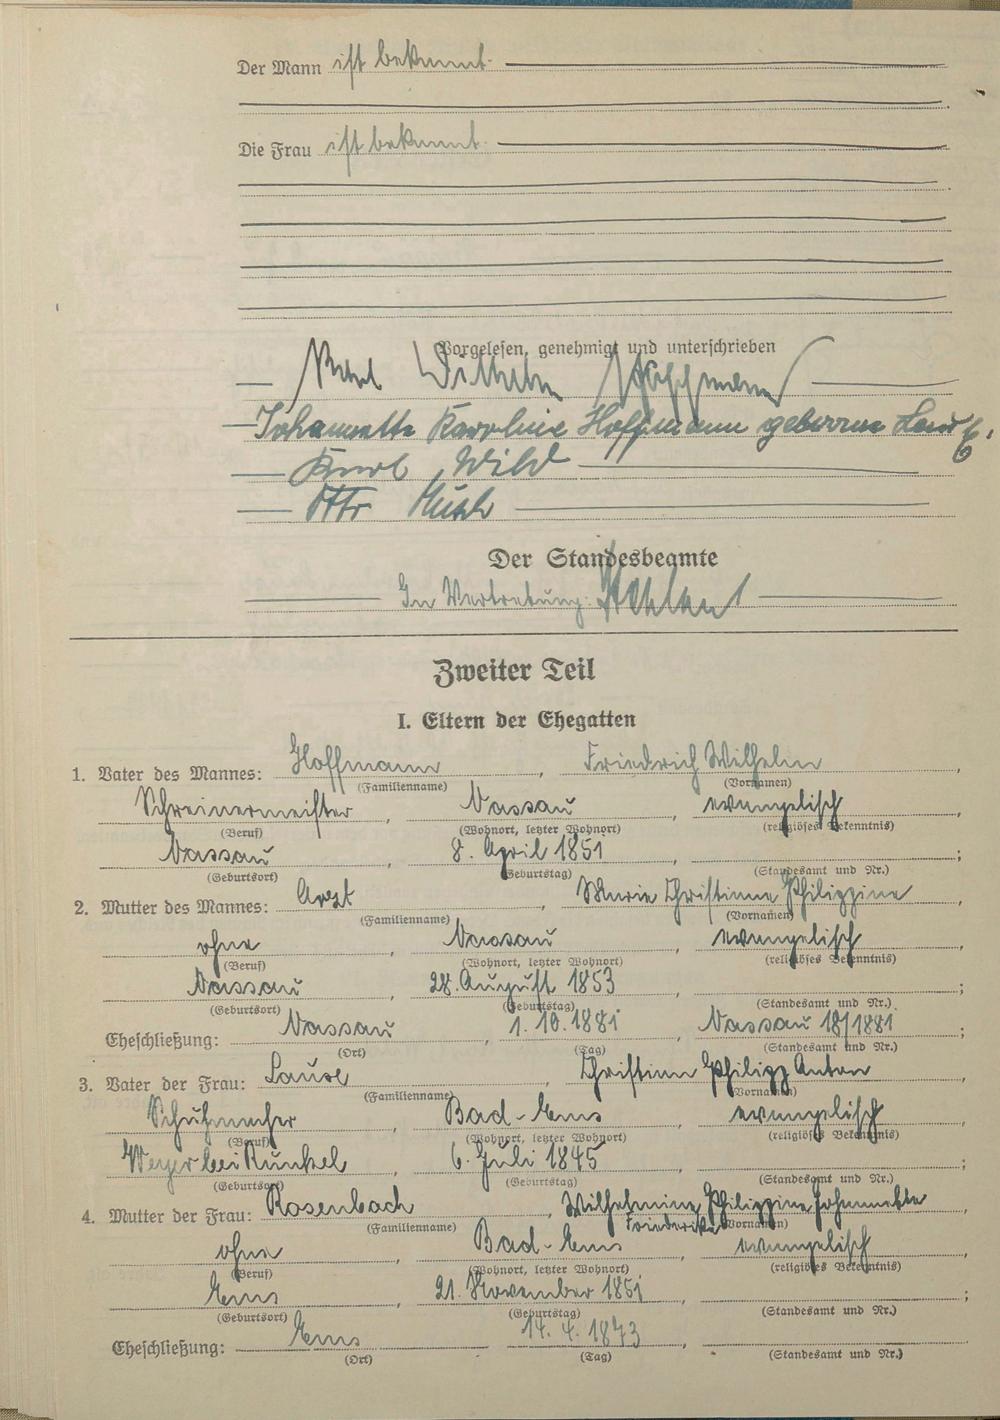 Der Mann ist bekannt.
Die Frau ist bekannt.
Vorgelesen, genehmigt und unterschrieben
Karl Wilhelm Hoffmann
Johannette Karoline Hoffmann geborene
Karl Wild
Otto
Der Standesbeamte
In Vertretung:
Zweiter Teil
I. Eltern der Ehegatten
1. Vater des Mannes: Hoffmann, Friedrich Wilhelm,
(Familienname) (Vornamen)
Schreinermeister, Nassau, evangelisch,
(Beruf) (Wohnort, letzter Wohnort) (religiöses Bekenntnis)
Nassau, 8. April 1851, ;
(Geburtsort) (Geburtstag) (Standesamt und Nr.)
2. Mutter des Mannes: Arzt, Marie Christiane Philippine,
(Familienname) (Vornamen)
ohne, Nassau, evangelisch,
(Beruf) (Wohnort, letzter Wohnort) (religiöses Bekenntnis)
Nassau, 28. August 1853, ;
(Geburtsort) (Geburtstag) (Standesamt und Nr.)
Eheschließung: Nassau, 1. 10. 1881, Nassau 18/1881;
(Ort) (Tag) (Standesamt und Nr.)
3. Vater der Frau: Lause, Christian Philipp Anton,
(Familienname) (Vornamen)
Schuhmacher, Bad-Ems, evangelisch,
(Beruf) (Wohnort, letzter Wohnort) (religiöses Bekenntnis)
Weyer bei Runkel, 6. Juli 1845, ;
(Geburtsort) (Geburtstag) (Standesamt und Nr.)
4. Mutter der Frau: Rosenbach, Wilhelmine Philippine Johannette
(Familienname) Friederike (Vornamen)
ohne, Bad-Ems, evangelisch,
(Beruf) (Wohnort, letzter Wohnort) (religiöses Bekenntnis)
Ems, 21. November 1851, ;
(Geburtsort) (Geburtstag) (Standesamt und Nr.)
Eheschließung: Ems, 14. 4. 1873,
(Ort) (Tag) (Standesamt und Nr.)